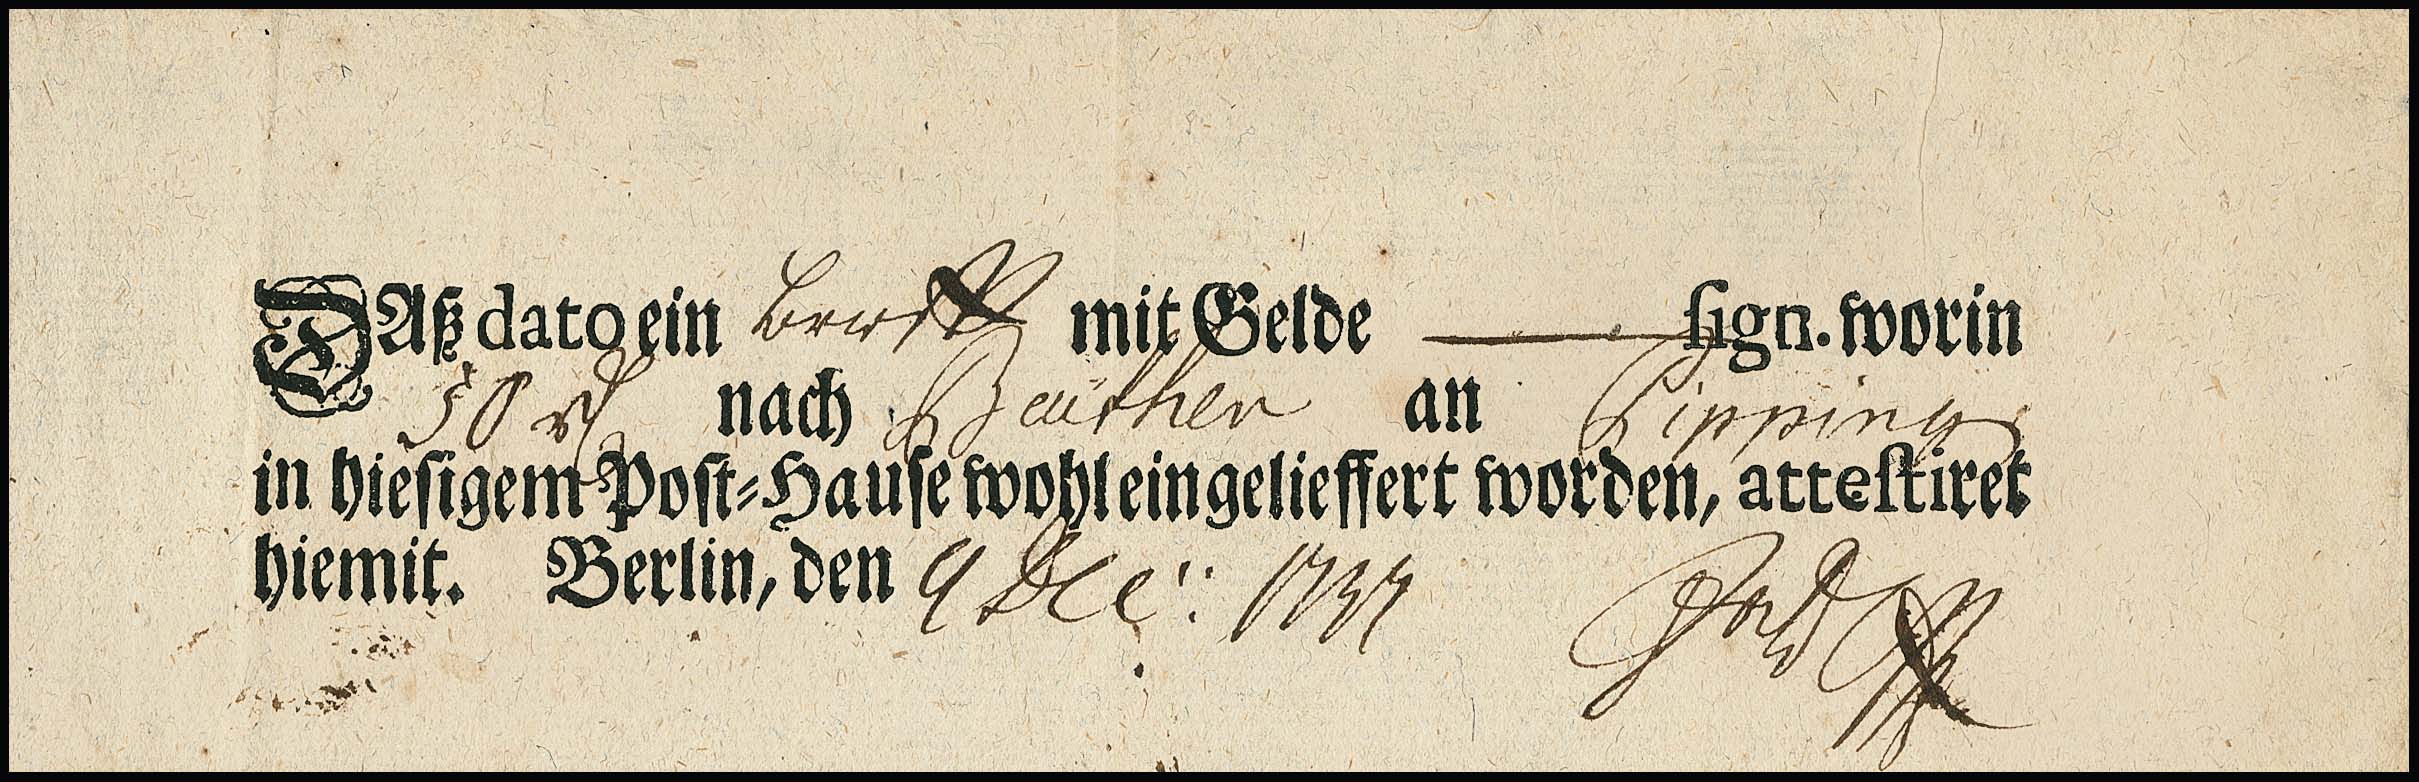 DAß dato ein Brieff mit Gelde — sign. worin
50 rh nach Beuthen an Pipping
in hiesigem Post-Hause wohl eingelieffert worden, attestiret
hiemit. Berlin, den 9 Dec: 1737